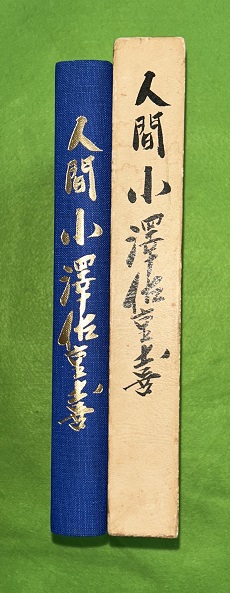 人間小澤佐重喜
人間小澤佐重喜